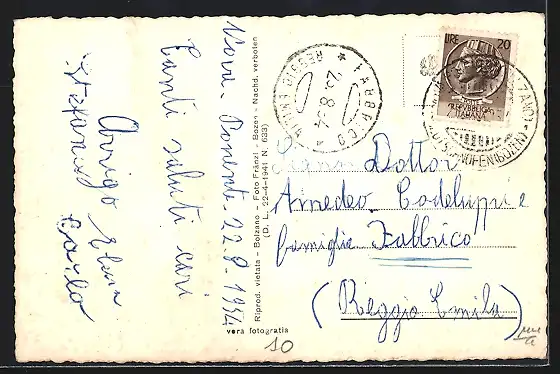 Nova-Ponente 22-8-1954
Tanti saluti cari
Arrigo Elena
Stefania
Carlo
Riprod. vietata - Bolzano - Foto Fränzl - Bozen - Nachd. verboten
(D. L. 22-4-1941 N. 633)
vera fotografia
FABBRICO
REGGIO EMILIA
23.8.54
LIRE 20
REPVBBLICA
ITALIANA
Dottor
Amedeo Codeluppi e
famiglia Fabbrico
(Reggio Emilia)
10